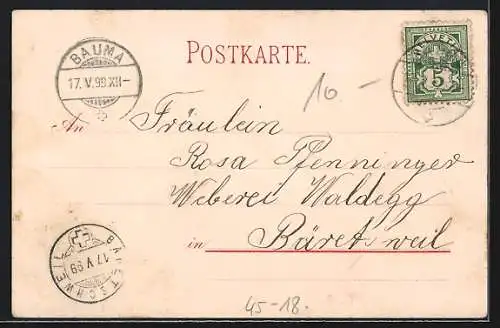 POSTKARTE.
BAUMA
17. V. 99. XII-
HELVETIA
5
10.-
An Fräulein
Rosa Pfenninger
Weberei Waldegg
in Bäretsweil
BAERETSCHWEIL
17. V. 99
45-18.